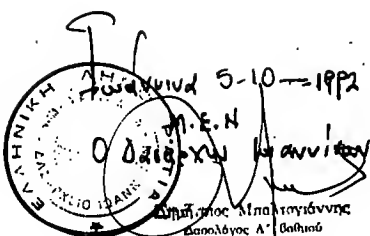 Ιωάννινα 5-10-1992
Μ.Ε.Ν
Ο Δασάρχης Ιωαννίνων
ΕΛΛΗΝΙΚΗ ΔΗΜΟΚΡΑΤΙΑ
Δημήτριος Μπαλτογιάννης
Δασολόγος Α' βαθμού